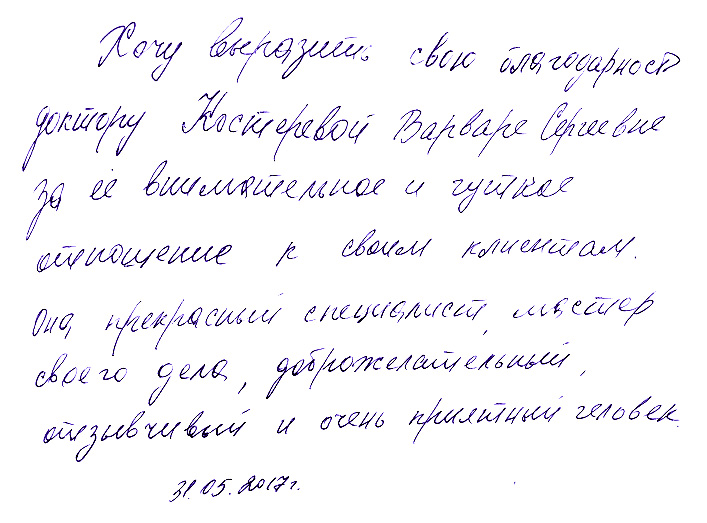 Хочу выразить свою благодарность
доктору Костеревой Варваре Сергеевне
за её внимательное и чуткое
отношение к своим клиентам.
Она прекрасный специалист, мастер
своего дела, доброжелательный,
отзывчивый и очень приятный человек.
31.05.2017г.